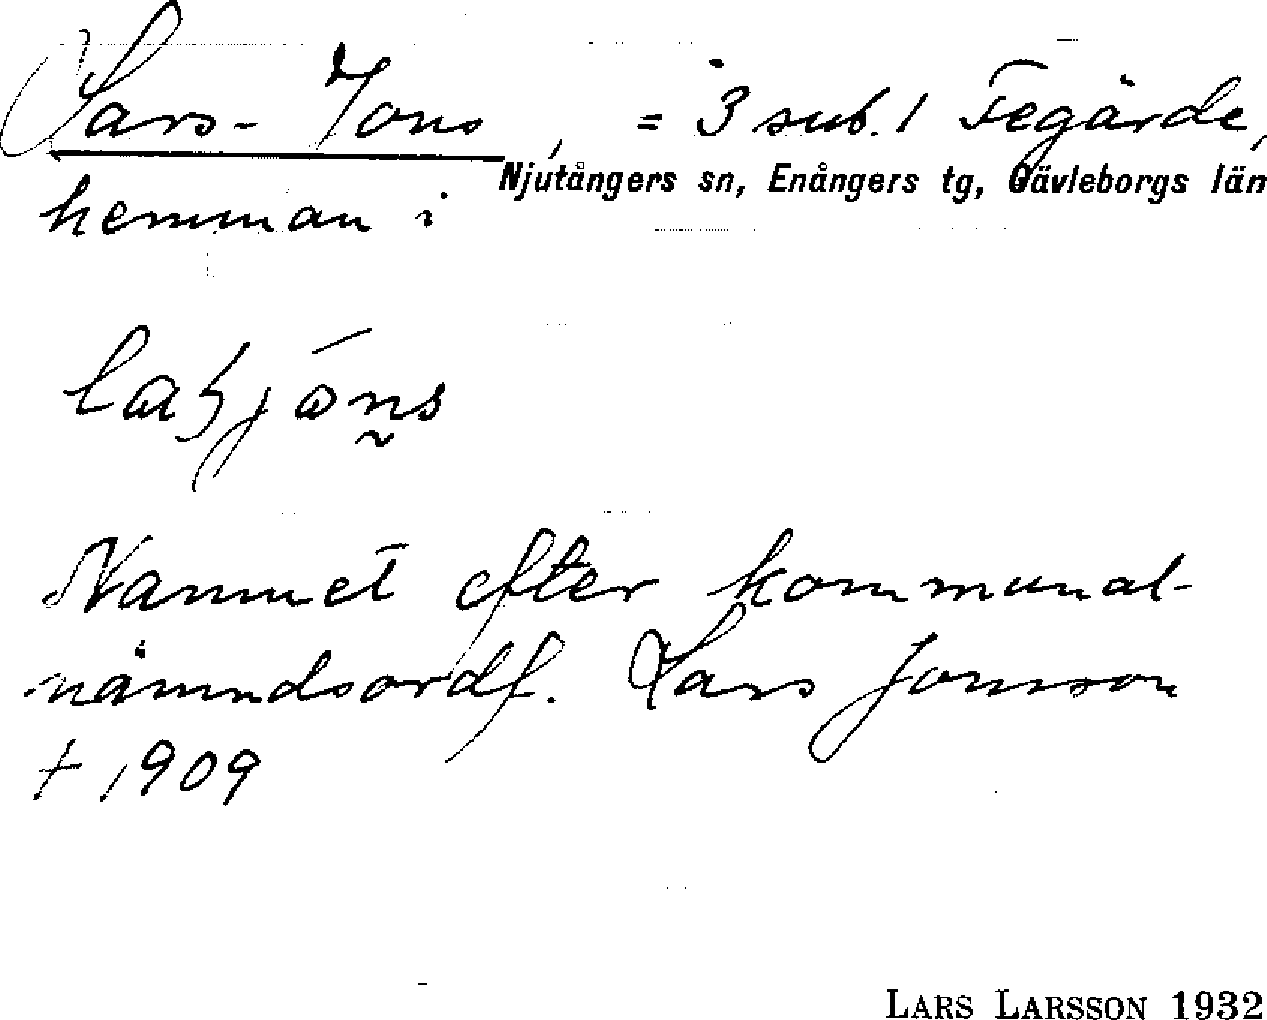 Lars-Jons, = 3 sub. 1 Tegärde,
hemman i Njutångers sn, Enångers tg, Gävleborgs län
Namnet efter kommunal-
nämndsordf. Lars Jonsson
† 1909
LARS LARSSON 1932